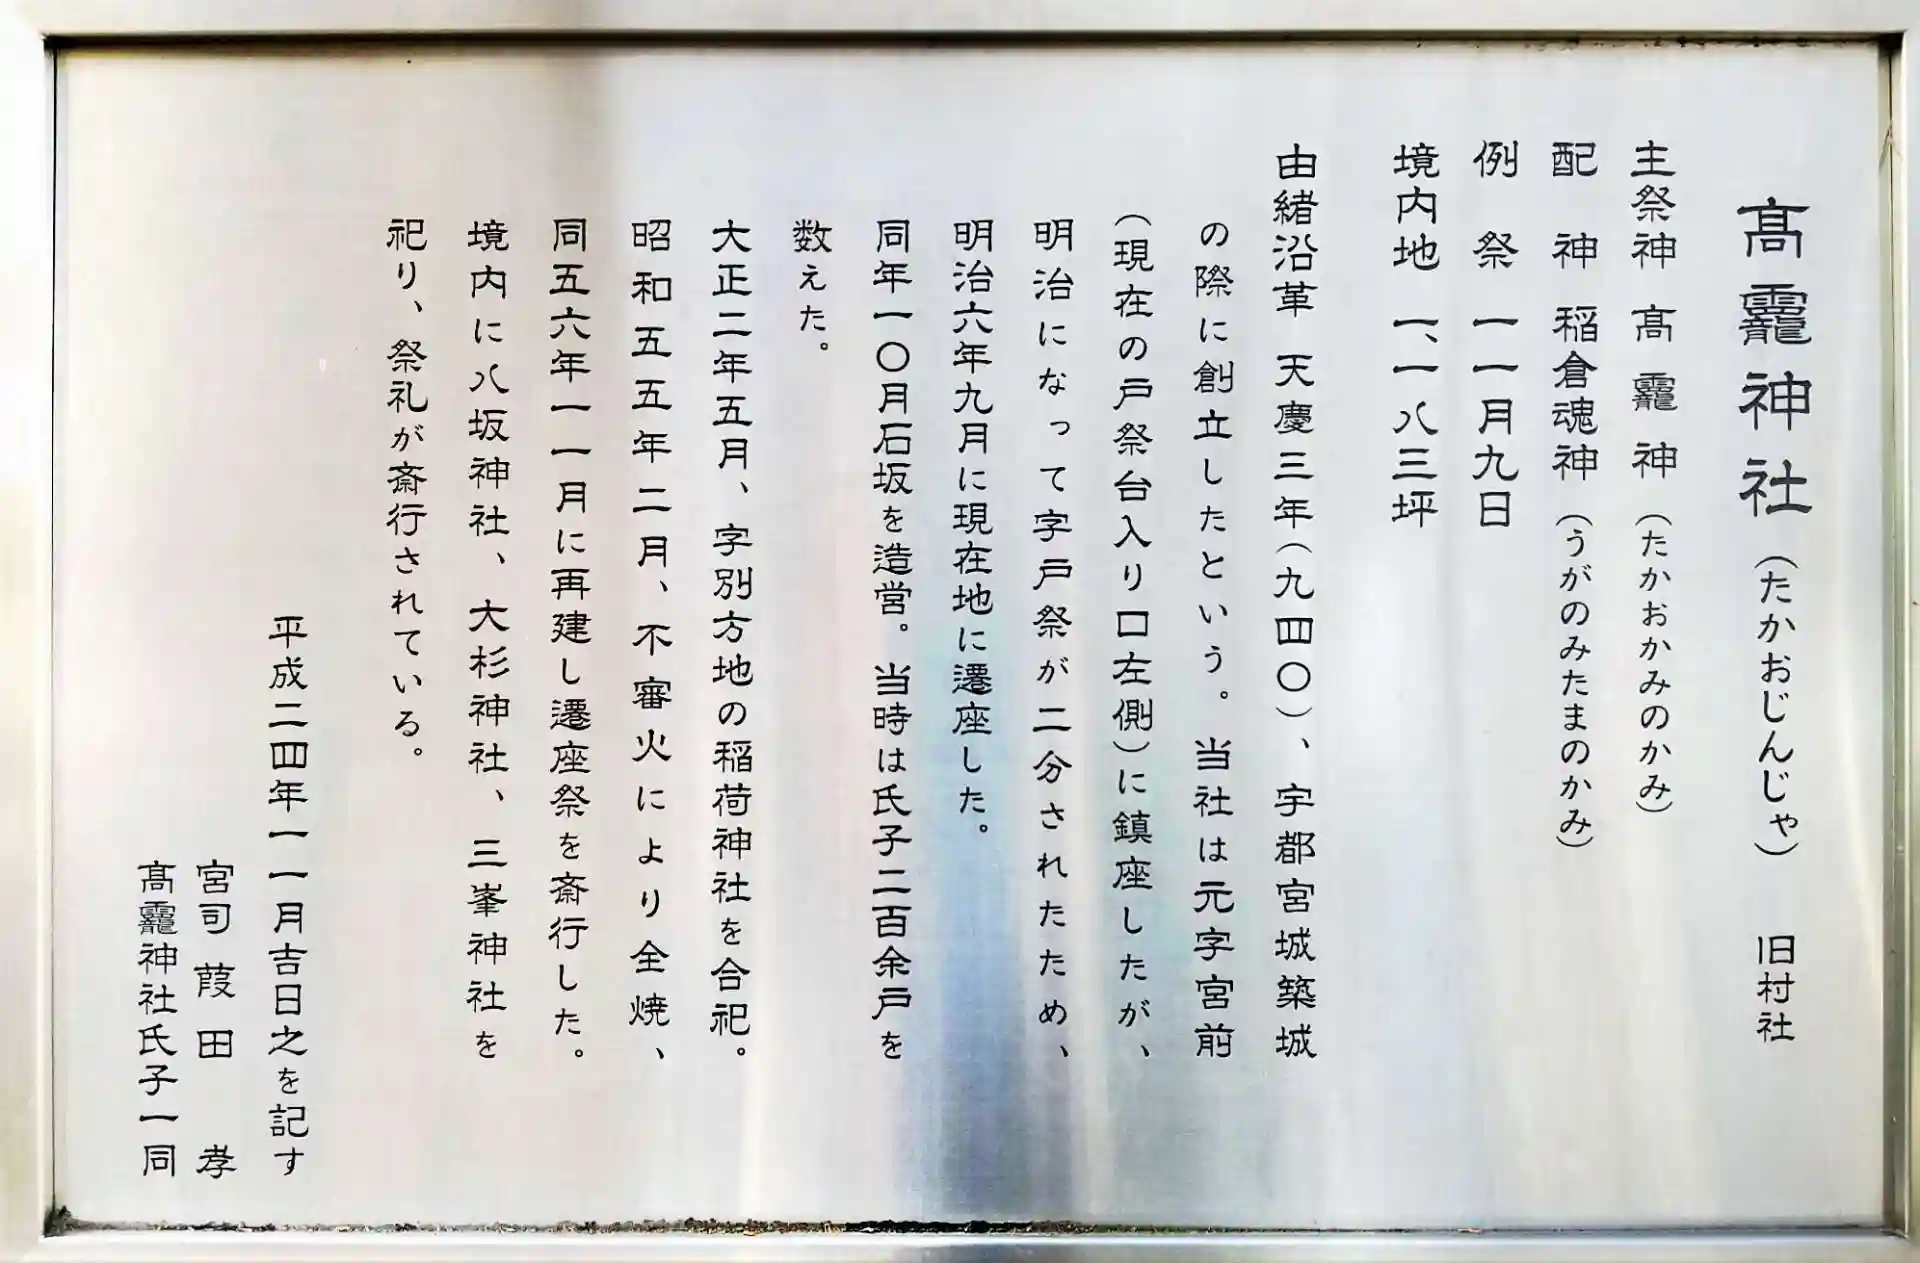 髙靇神社(たかおじんじゃ) 旧村社
主祭神 髙靇神(たかおかみのかみ)
配神 稲倉魂神(うがのみたまのかみ)
例祭 一一月九日
境内地 一、一八三坪
由緒沿革 天慶三年(九四〇)、宇都宮城築城
の際に創立したという。当社は元字宮前
(現在の戸祭台入り口左側)に鎮座したが、
明治になって字戸祭が二分されたため、
明治六年九月に現在地に遷座した。
同年一〇月石坂を造営。当時は氏子二百余戸を
数えた。
大正二年五月、字別方地の稲荷神社を合祀。
昭和五五年二月、不審火により全焼、
同五六年一一月に再建し遷座祭を斎行した。
境内に八坂神社、大杉神社、三峯神社を
祀り、祭礼が斎行されている。
平成二四年一一月吉日之を記す
宮司 葭田 孝
髙靇神社氏子一同